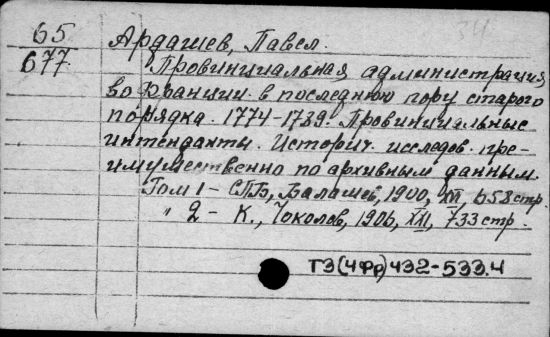 34
65
677
Ардашев, Павел.
Провинциальная администрация
во Франции в последнюю пору старого
порядка. 1774-1789. Провинциальные
интенданты. Историч. исследов. пре-
имущественно по архивным данным.
Том 1 - СПБ, Балашев, 1900, XII, 658 стр.
" 2 - К., Чоколов, 1906, XXI, 733 стр.
Т3(4Фр)432-533.4